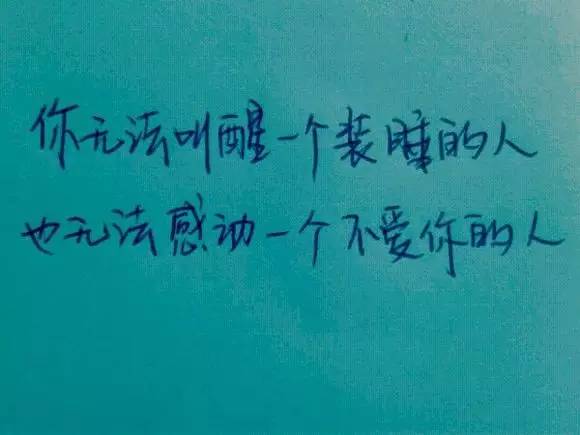 你无法叫醒一个装睡的人
也无法感动一个不爱你的人